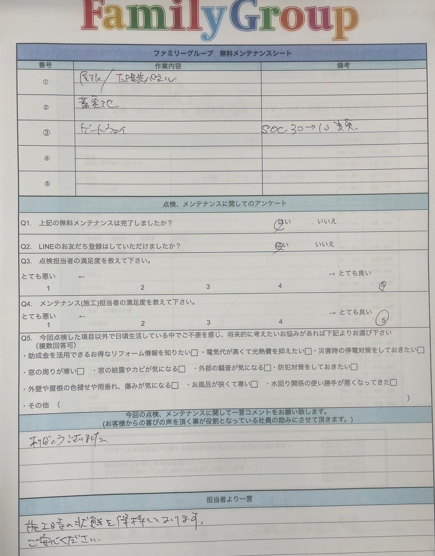 FamilyGroup
ファミリーグループ 無料メンテナンスシート
番号 作業内容 備考
① 屋根/太陽光パネル
② 蓄電池
③ ゲートウェイ SOC 30→10 変更
④
⑤
点検、メンテナンスに関してのアンケート
Q1. 上記の無料メンテナンスは完了しましたか? はい いいえ
Q2. LINEのお友だち登録はしていただけましたか? はい いいえ
Q3. 点検担当者の満足度を教えて下さい。
とても悪い ← → とても良い
1 2 3 4 5
Q4. メンテナンス(施工)担当者の満足度を教えて下さい。
とても悪い ← → とても良い
1 2 3 4 5
Q5. 今回点検した項目以外で日頃生活している中でご不便を感じ、将来的に考えたいお悩みがあれば下記よりお選び下さい
(複数回答可)
・助成金を活用できるお得なリフォーム情報を知りたい□ ・電気代が高くて光熱費を抑えたい□ ・災害時の停電対策をしておきたい□
・窓の周りが寒い□ ・窓の結露やカビが気になる□ ・外部の騒音が気になる□ ・防犯対策をしておきたい□
・外壁や屋根の色褪せや雨垂れ、傷みが気になる□ ・お風呂が狭くて寒い□ ・水回り関係の使い勝手が悪くなってきた□
・その他 ( )
今回の点検、メンテナンスに関して一言コメントをお願い致します。
(お客様からの喜びの声を頂く事が役割となっている社員の励みにさせて頂きます。)
ありがとうございました
担当者より一言
施工時の状態を保持しております。
ご安心ください。